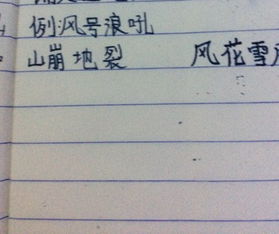 例:风号浪吼
山崩地裂 风花雪